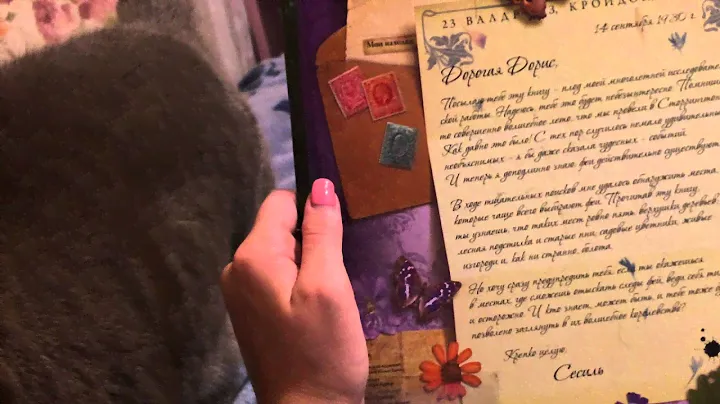 Мои находки
23 ВАЛЛАДЕЙЗ, КРОЙДО
14 сентября 1930 г.
Дорогая Дорис,
Посылаю тебе эту книгу - плод моей многолетней исследовате
ской работы. Надеюсь, тебе это будет небезынтересно. Помниш
то совершенно волшебное лето, что мы провели в Сторрингтон
Как давно это было! С тех пор случилось немало удивительны
необъяснимых - я бы даже сказала чудесных - событий.
И теперь я доподлинно знаю: феи действительно существуют
В ходе тщательных поисков мне удалось обнаружить места,
которые чаще всего выбирают феи. Прочитав эту книгу,
ты узнаешь, что таких мест ровно пять: верхушки деревьев,
лесная подстилка и старые пни, садовые цветники, живые
изгороди и, как ни странно, болота.
Но хочу сразу предупредить тебя: если ты окажешься
в местах, где сможешь отыскать следы фей, веди себя т
и осторожно. И кто знает, может быть, и тебе тоже бу
позволено заглянуть в их волшебное королевство?
Крепко целую,
Сесиль